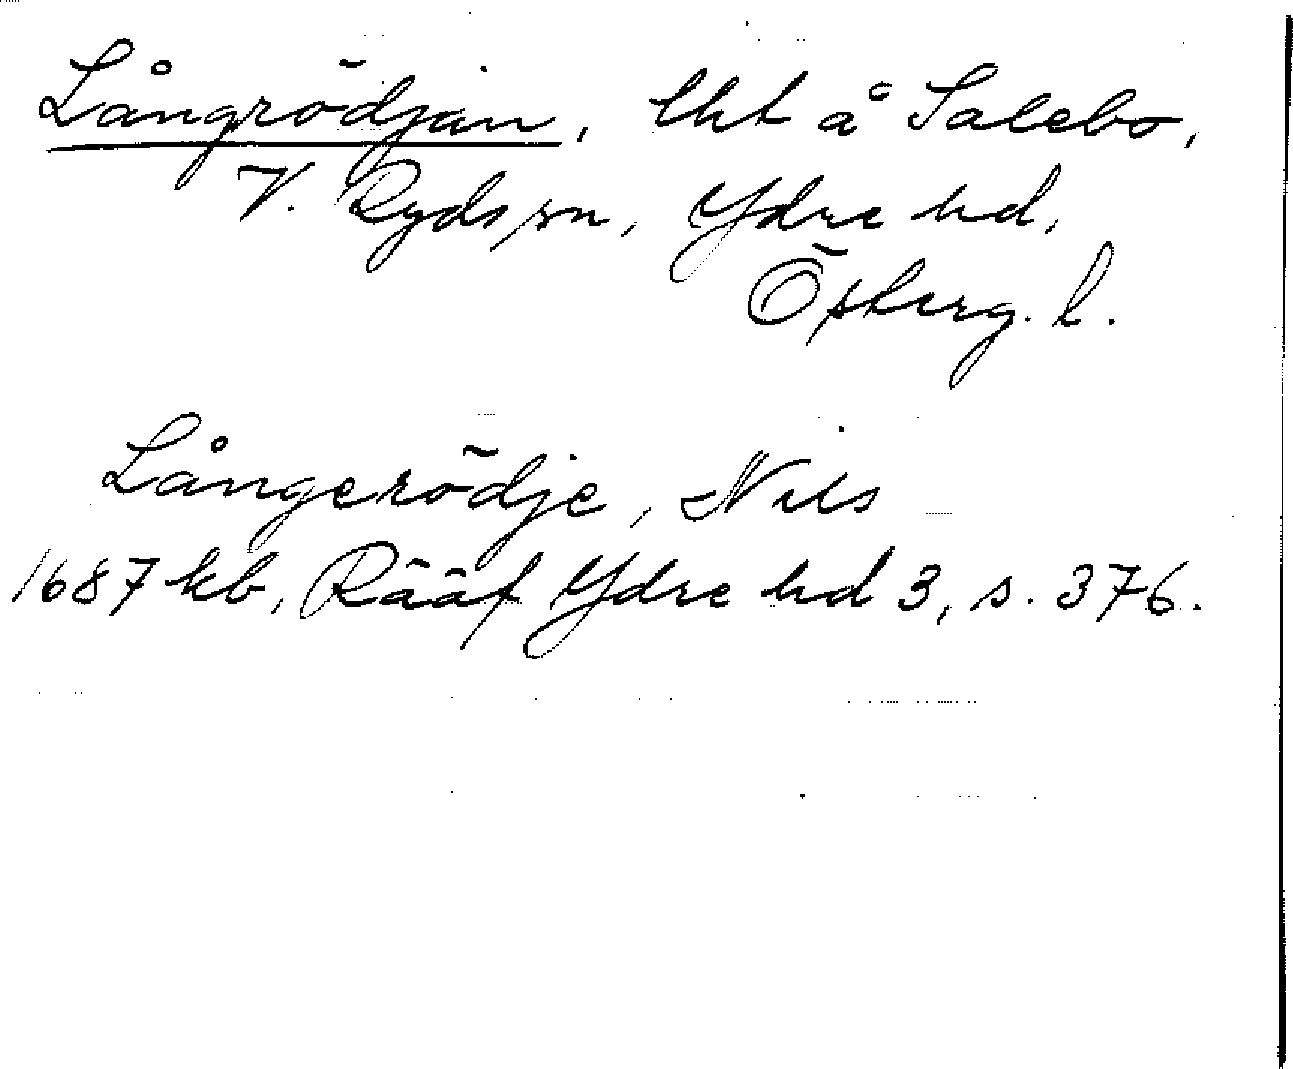 Långrödjan, lht å Salebo,
V. Ryds sn, Ydre hd,
Österg. l.
Långerödje, Nils
1687 kb, Rääf Ydre hd 3, s. 376.